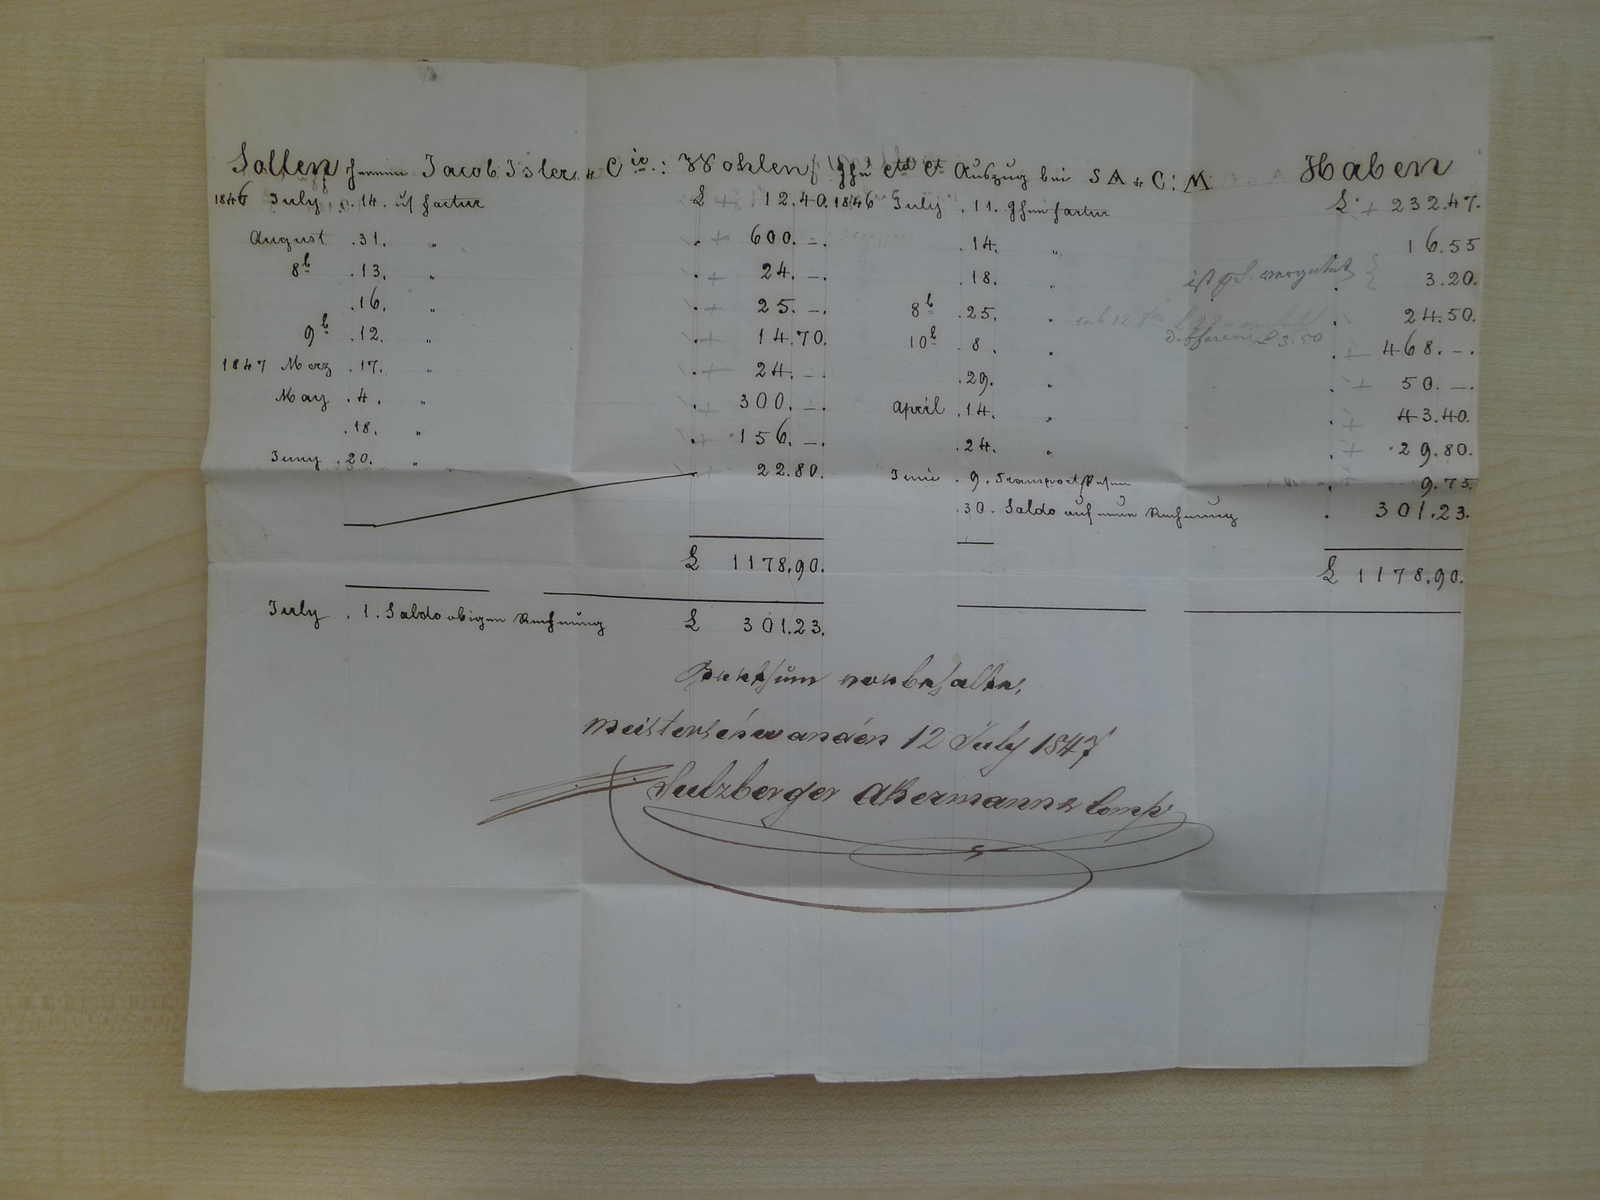 Sollen Herren Jacob Isler & Cie.: Wohlen Ihr Cto Ct Auszug bei S A & C: M Haben
1846 July .14. uf factur £ 12.40. 1846 July .11. Ihre factur £ 232.47.
August .31. " . 600.–. .14. " 16.55
8b .13. " . 24.–. .18. " . 3.20.
.16. " . 25.–. 8b .25. " . 24.50.
9b .12. " . 14.70. 10b .8. " . 468.–.
differenz £ 3.50
1847 Merz .17. " . 24.–. .29. " . 50.–.
May .4. " . 300.–. April .14. " . 43.40.
.18. " . 156.–. .24. " . 29.80.
Juny .20. " . 22.80. Junie .9. Transportspesen . 9.75.
.30. Saldo auf neue Rechnung . 301.23.
£ 1178.90. £ 1178.90.
July .1. Saldo obigen Rechnung £ 301.23.
Irrthum vorbehalten,
Meisterschwanden 12 July 1847
Sulzberger Akermann & Comp.